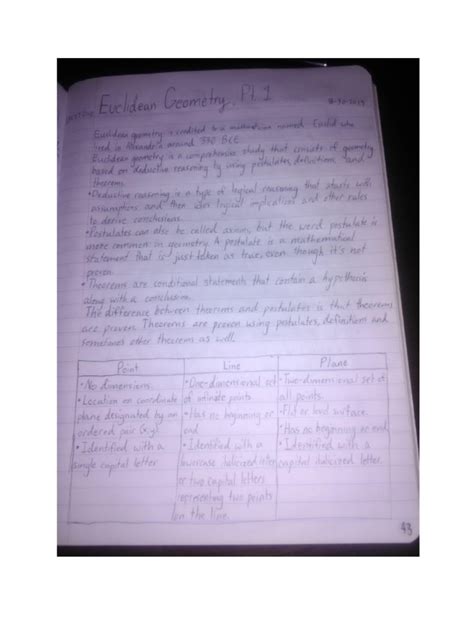 Euclidean Geometry, Pt. 1
Euclidean geometry is credited to a mathematician named Euclid who
lived in Alexandria around 330 BCE.
Euclidean geometry is a comprehensive study that consists of geometry
based on deductive reasoning by using postulates, definitions, and
theorems.
•Deductive reasoning is a type of logical reasoning that starts with
assumptions and then uses logical implications and other rules
to derive conclusions.
•Postulates can also be called axioms, but the word postulate is
more common in geometry. A postulate is a mathematical
statement that is just taken as true, even though it's not
proven.
•Theorems are conditional statements that contain a hypothesis
along with a conclusion.
The difference between theorems and postulates is that theorems
are proven. Theorems are proven using postulates, definitions and
sometimes other theorems as well.
Point
•No dimensions.
•Location or coordinate
plane designated by an
ordered pair (x,y).
•Identified with a
single capital letter
Line
•One-dimensional set
of infinite points.
•Has no beginning or
end
•Identified with a
lowercase italicized letter
or two capital letters
representing two points
on the line.
Plane
•Two-dimensional set of
all points.
•Flat or level surface.
•Has no beginning or end
•Identified with a
capital italicized letter.
43